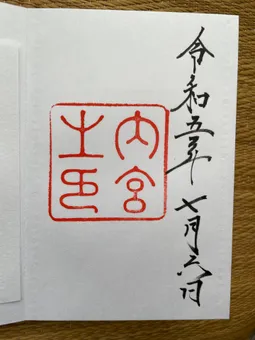 令和五年七月六日
内宮
之印